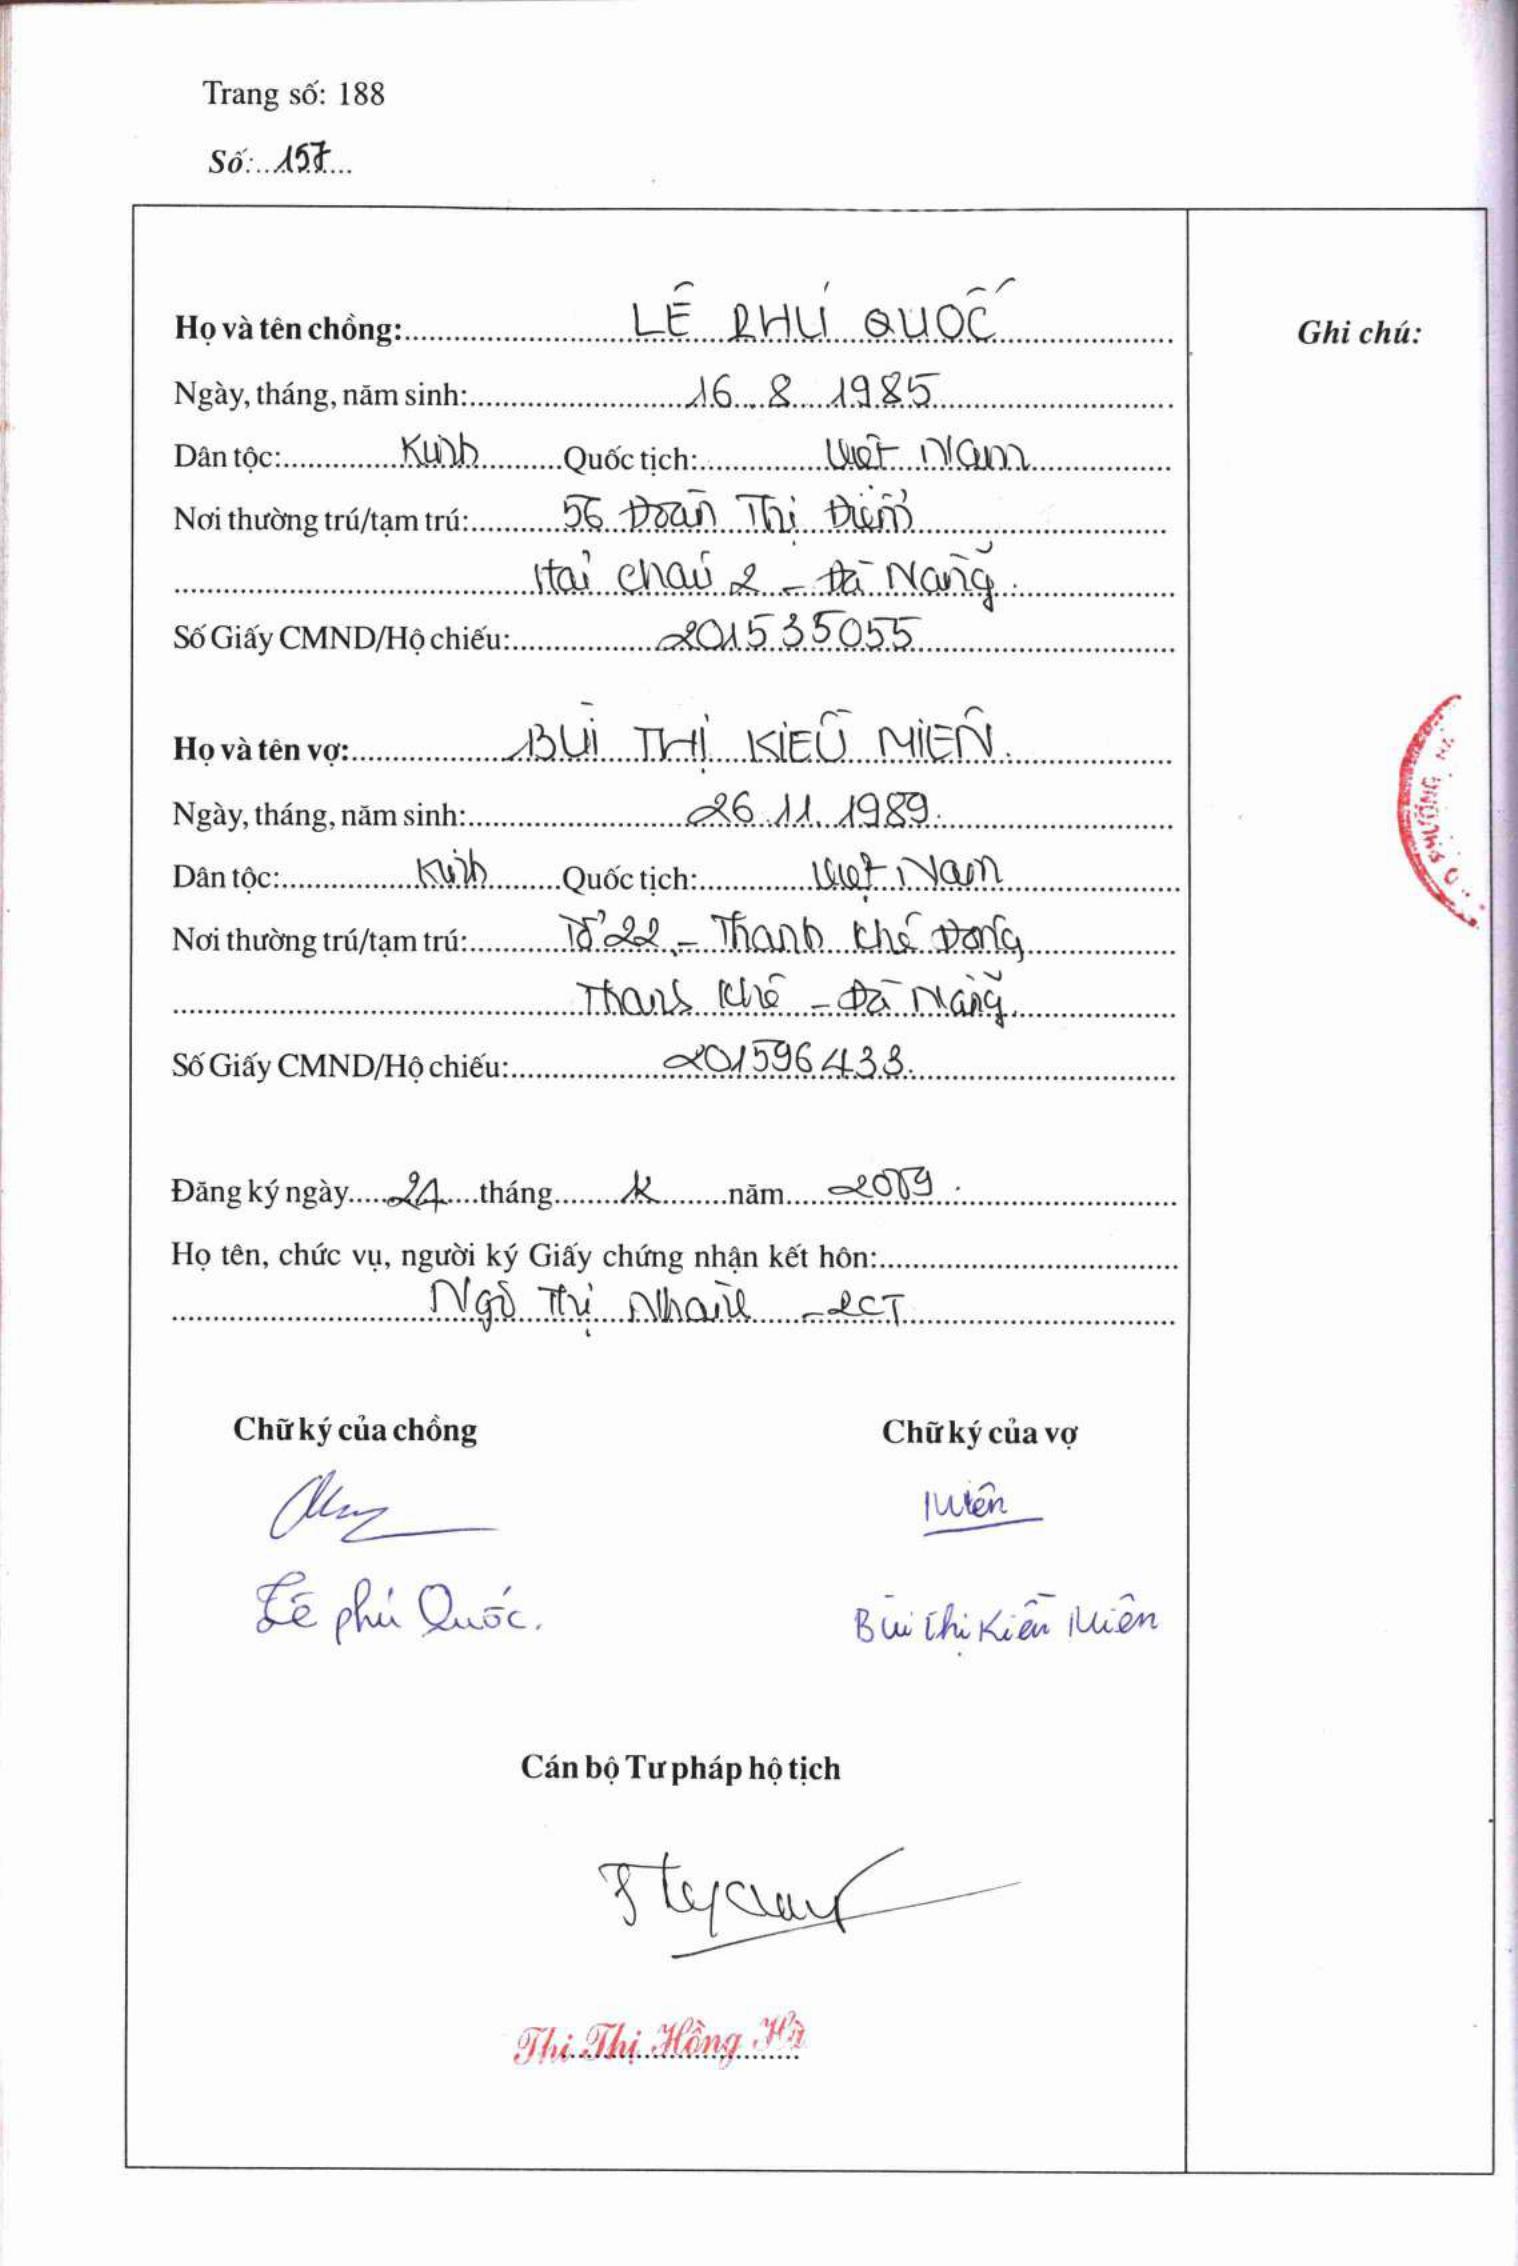 Trang số: 188
Số: 157
Họ và tên chồng: LÊ PHÚ QUỐC
Ghi chú:
Ngày, tháng, năm sinh: 16. 8. 1985
Dân tộc: Kinh Quốc tịch: Việt Nam
Nơi thường trú/tạm trú: 56 Đoàn Thị Điểm
Hải Châu 2 - Đà Nẵng.
Số Giấy CMND/Hộ chiếu: 201535055
Họ và tên vợ: BÙI THỊ KIỀU MIÊN.
Ngày, tháng, năm sinh: 26.11.1989.
Dân tộc: Kinh Quốc tịch: Việt Nam
Nơi thường trú/tạm trú: Tổ 22 - Thanh Khê Đông
Thanh Khê - Đà Nẵng.
Số Giấy CMND/Hộ chiếu: 201596433.
PHƯỜNG
Đăng ký ngày 24 tháng 12 năm 2009.
Họ tên, chức vụ, người ký Giấy chứng nhận kết hôn:
Ngô Thị - PCT
Chữ ký của chồng
Chữ ký của vợ
Miên
Lê Phú Quốc.
Bùi Thị Kiều Miên
Cán bộ Tư pháp hộ tịch
Thi Thị Hồng Hà